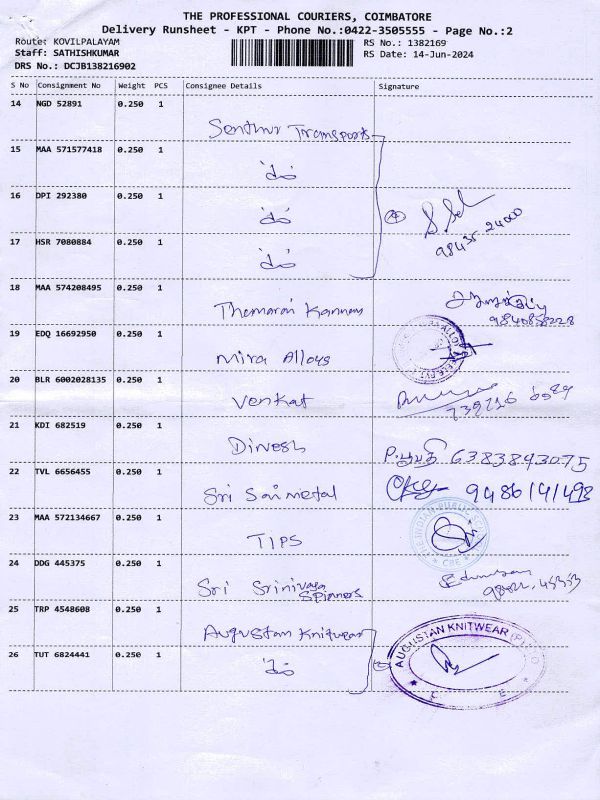 THE PROFESSIONAL COURIERS, COIMBATORE
Delivery Runsheet - KPT - Phone No.:0422-3505555 - Page No.:2
Route: KOVILPALAYAM RS No.: 1382169
Staff: SATHISHKUMAR RS Date: 14-Jun-2024
DRS No.: DCJB138216902
S No Consignment No Weight PCS Consignee Details Signature
14 NGD 52891 0.250 1
Senthur Transports
15 MAA 571577418 0.250 1
16 DPI 292380 0.250 1
17 HSR 7080884 0.250 1
98435 24000
18 MAA 574208495 0.250 1
Thamarai Kannan
9840858228
19 EDQ 16692950 0.250 1
Mira Alloys
20 BLR 6002028135 0.250 1
Venkat
21 KDI 682519 0.250 1
Dinesh P. பூபதி 6383893075
22 TVL 6656455 0.250 1
Sri Sai metal 9486141498
23 MAA 572134667 0.250 1
TIPS
CBE
24 DDG 445375 0.250 1
Sri Srinivasa Spinners
25 TRP 4548608 0.250 1
Augustan Knitwear
AUGUSTAN KNITWEAR (P) LTD
26 TUT 6824441 0.250 1